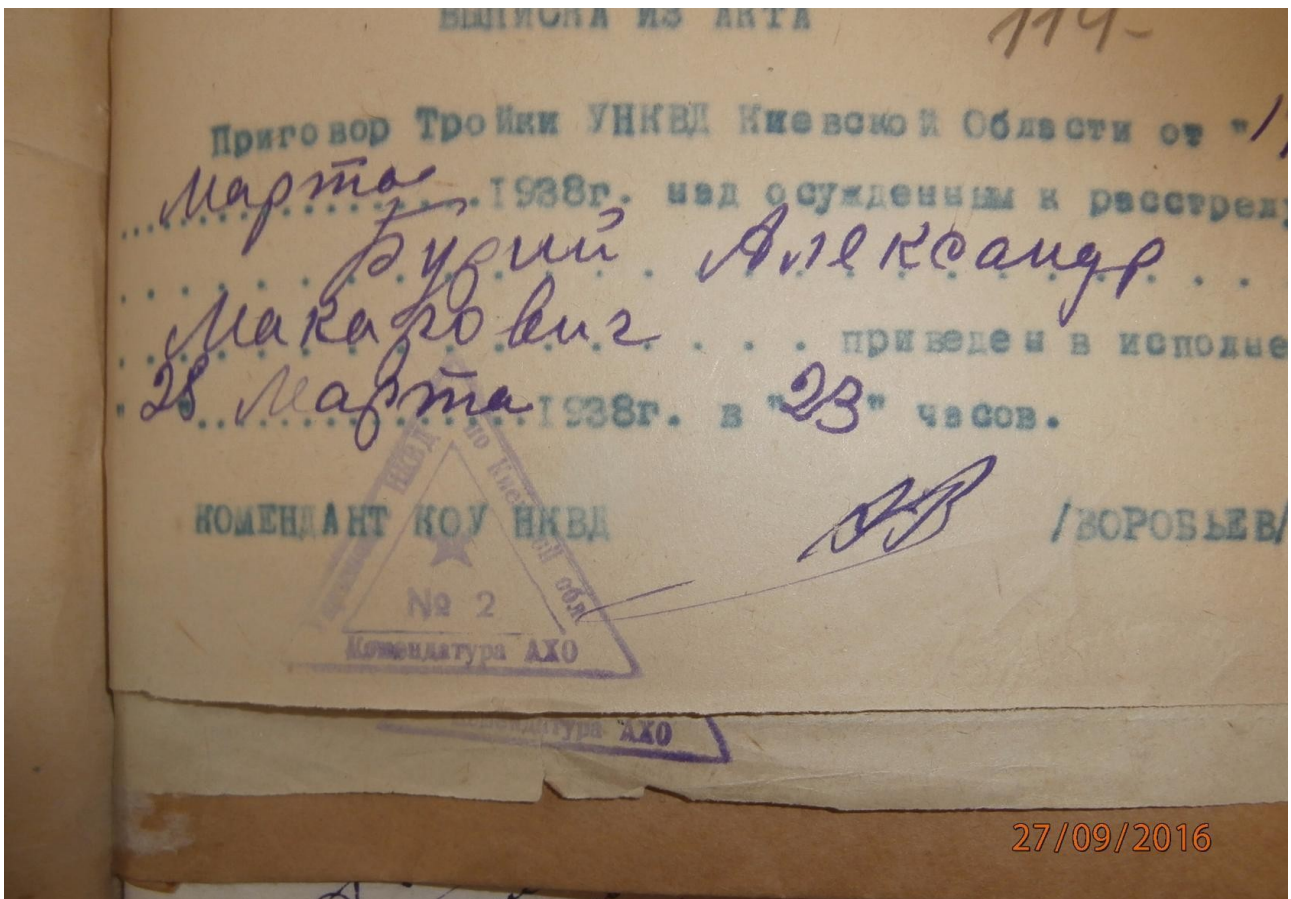 ВЫПИСКА ИЗ АКТА
114-
Приговор Тройки УНКВД Киевской Области от "1
Марта 1938г. над осужденным к расстрелу
Александр
Макарович приведен в исполне
"28 Марта 1938г. в "23" часов.
КОМЕНДАНТ КОУ НКВД /ВОРОБЬЕВ/
НКВД
по Киевской обл
№ 2
Комендатура АХО
Комендатура АХО
27/09/2016